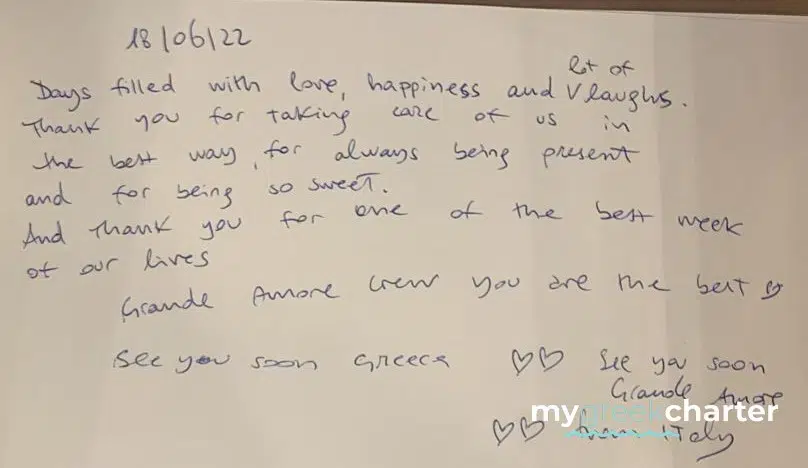 18/06/22
Days filled with love, happiness and V lot of laughs.
Thank you for taking care of us in
the best way, for always being present
and for being so sweet.
And thank you for one of the best week
of our lives
Grande Amore crew you are the best
See you soon Greece ♡♡ See you soon
Grande Amore
♡♡ from ITaly
mygreekcharter